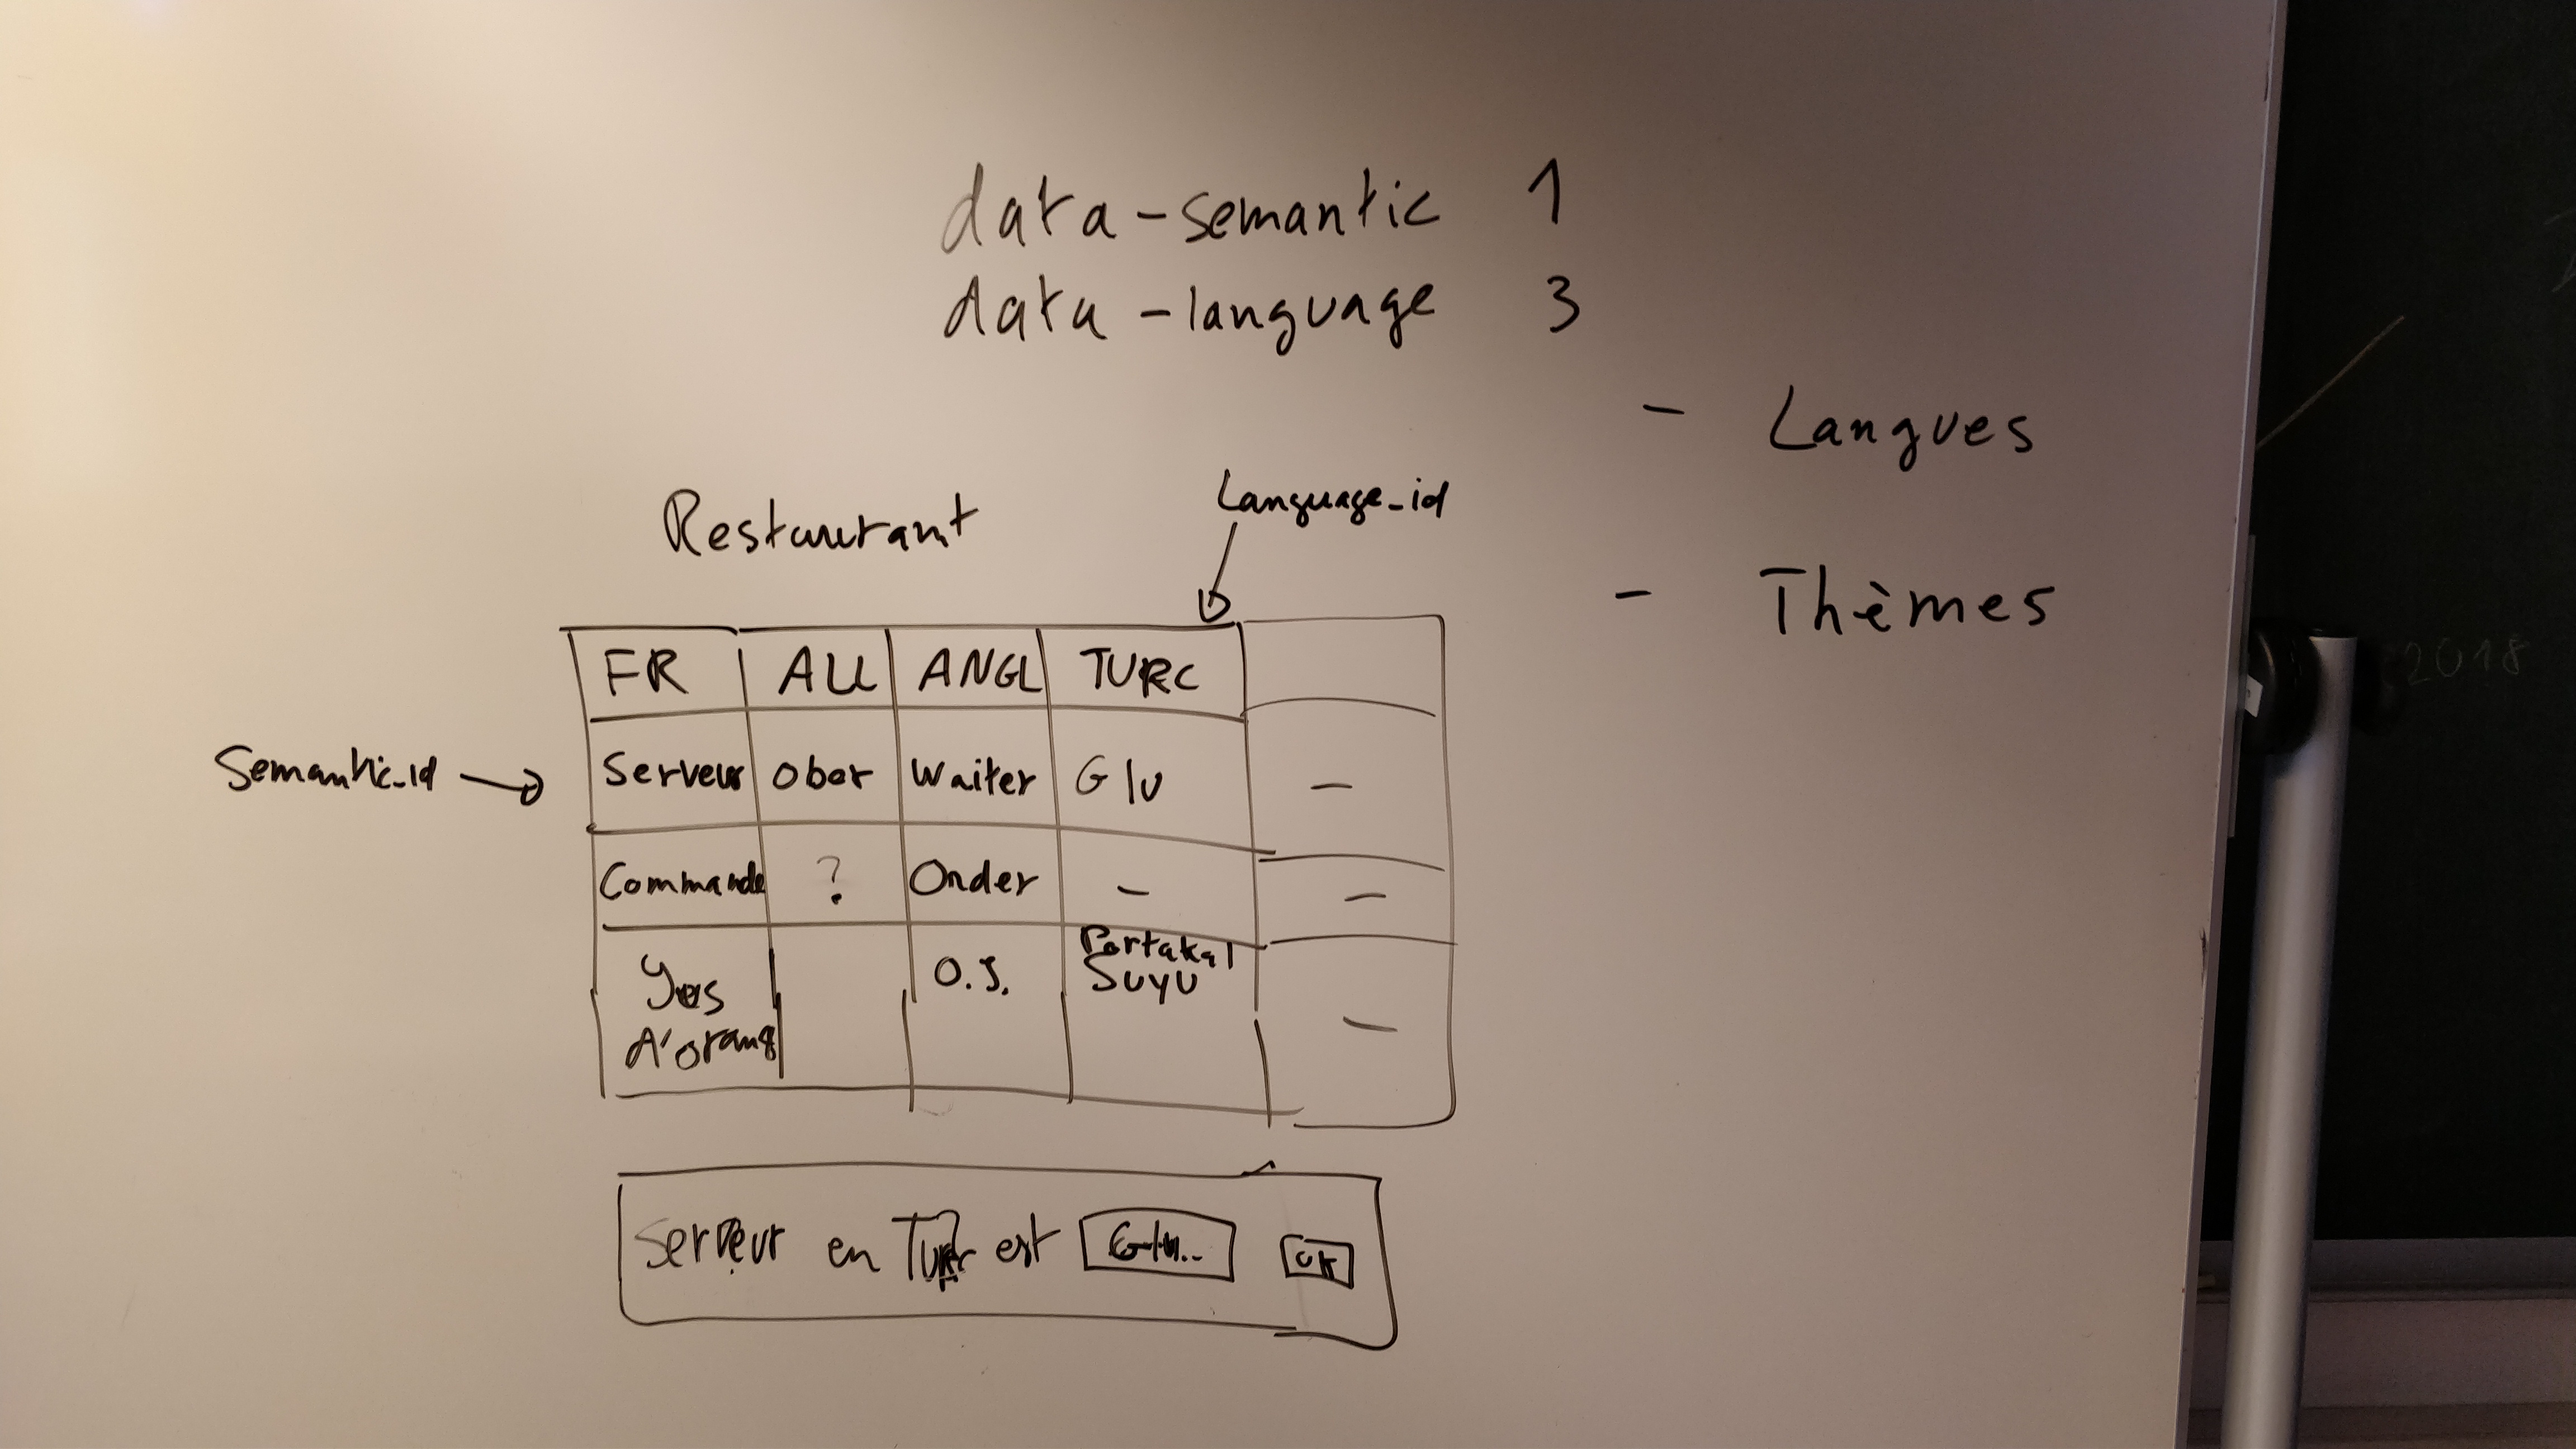 data-semantic 1
data-language 3
- Langues
- Thèmes
Restaurant
Language_id
FR ALL ANGL TURC
Semantic_id
Serveur Ober Waiter Glu -
Commande ? Order - -
O.J. Portakal
Suyu
d'orang -
Serveur en Turc est Glu... OK
2018